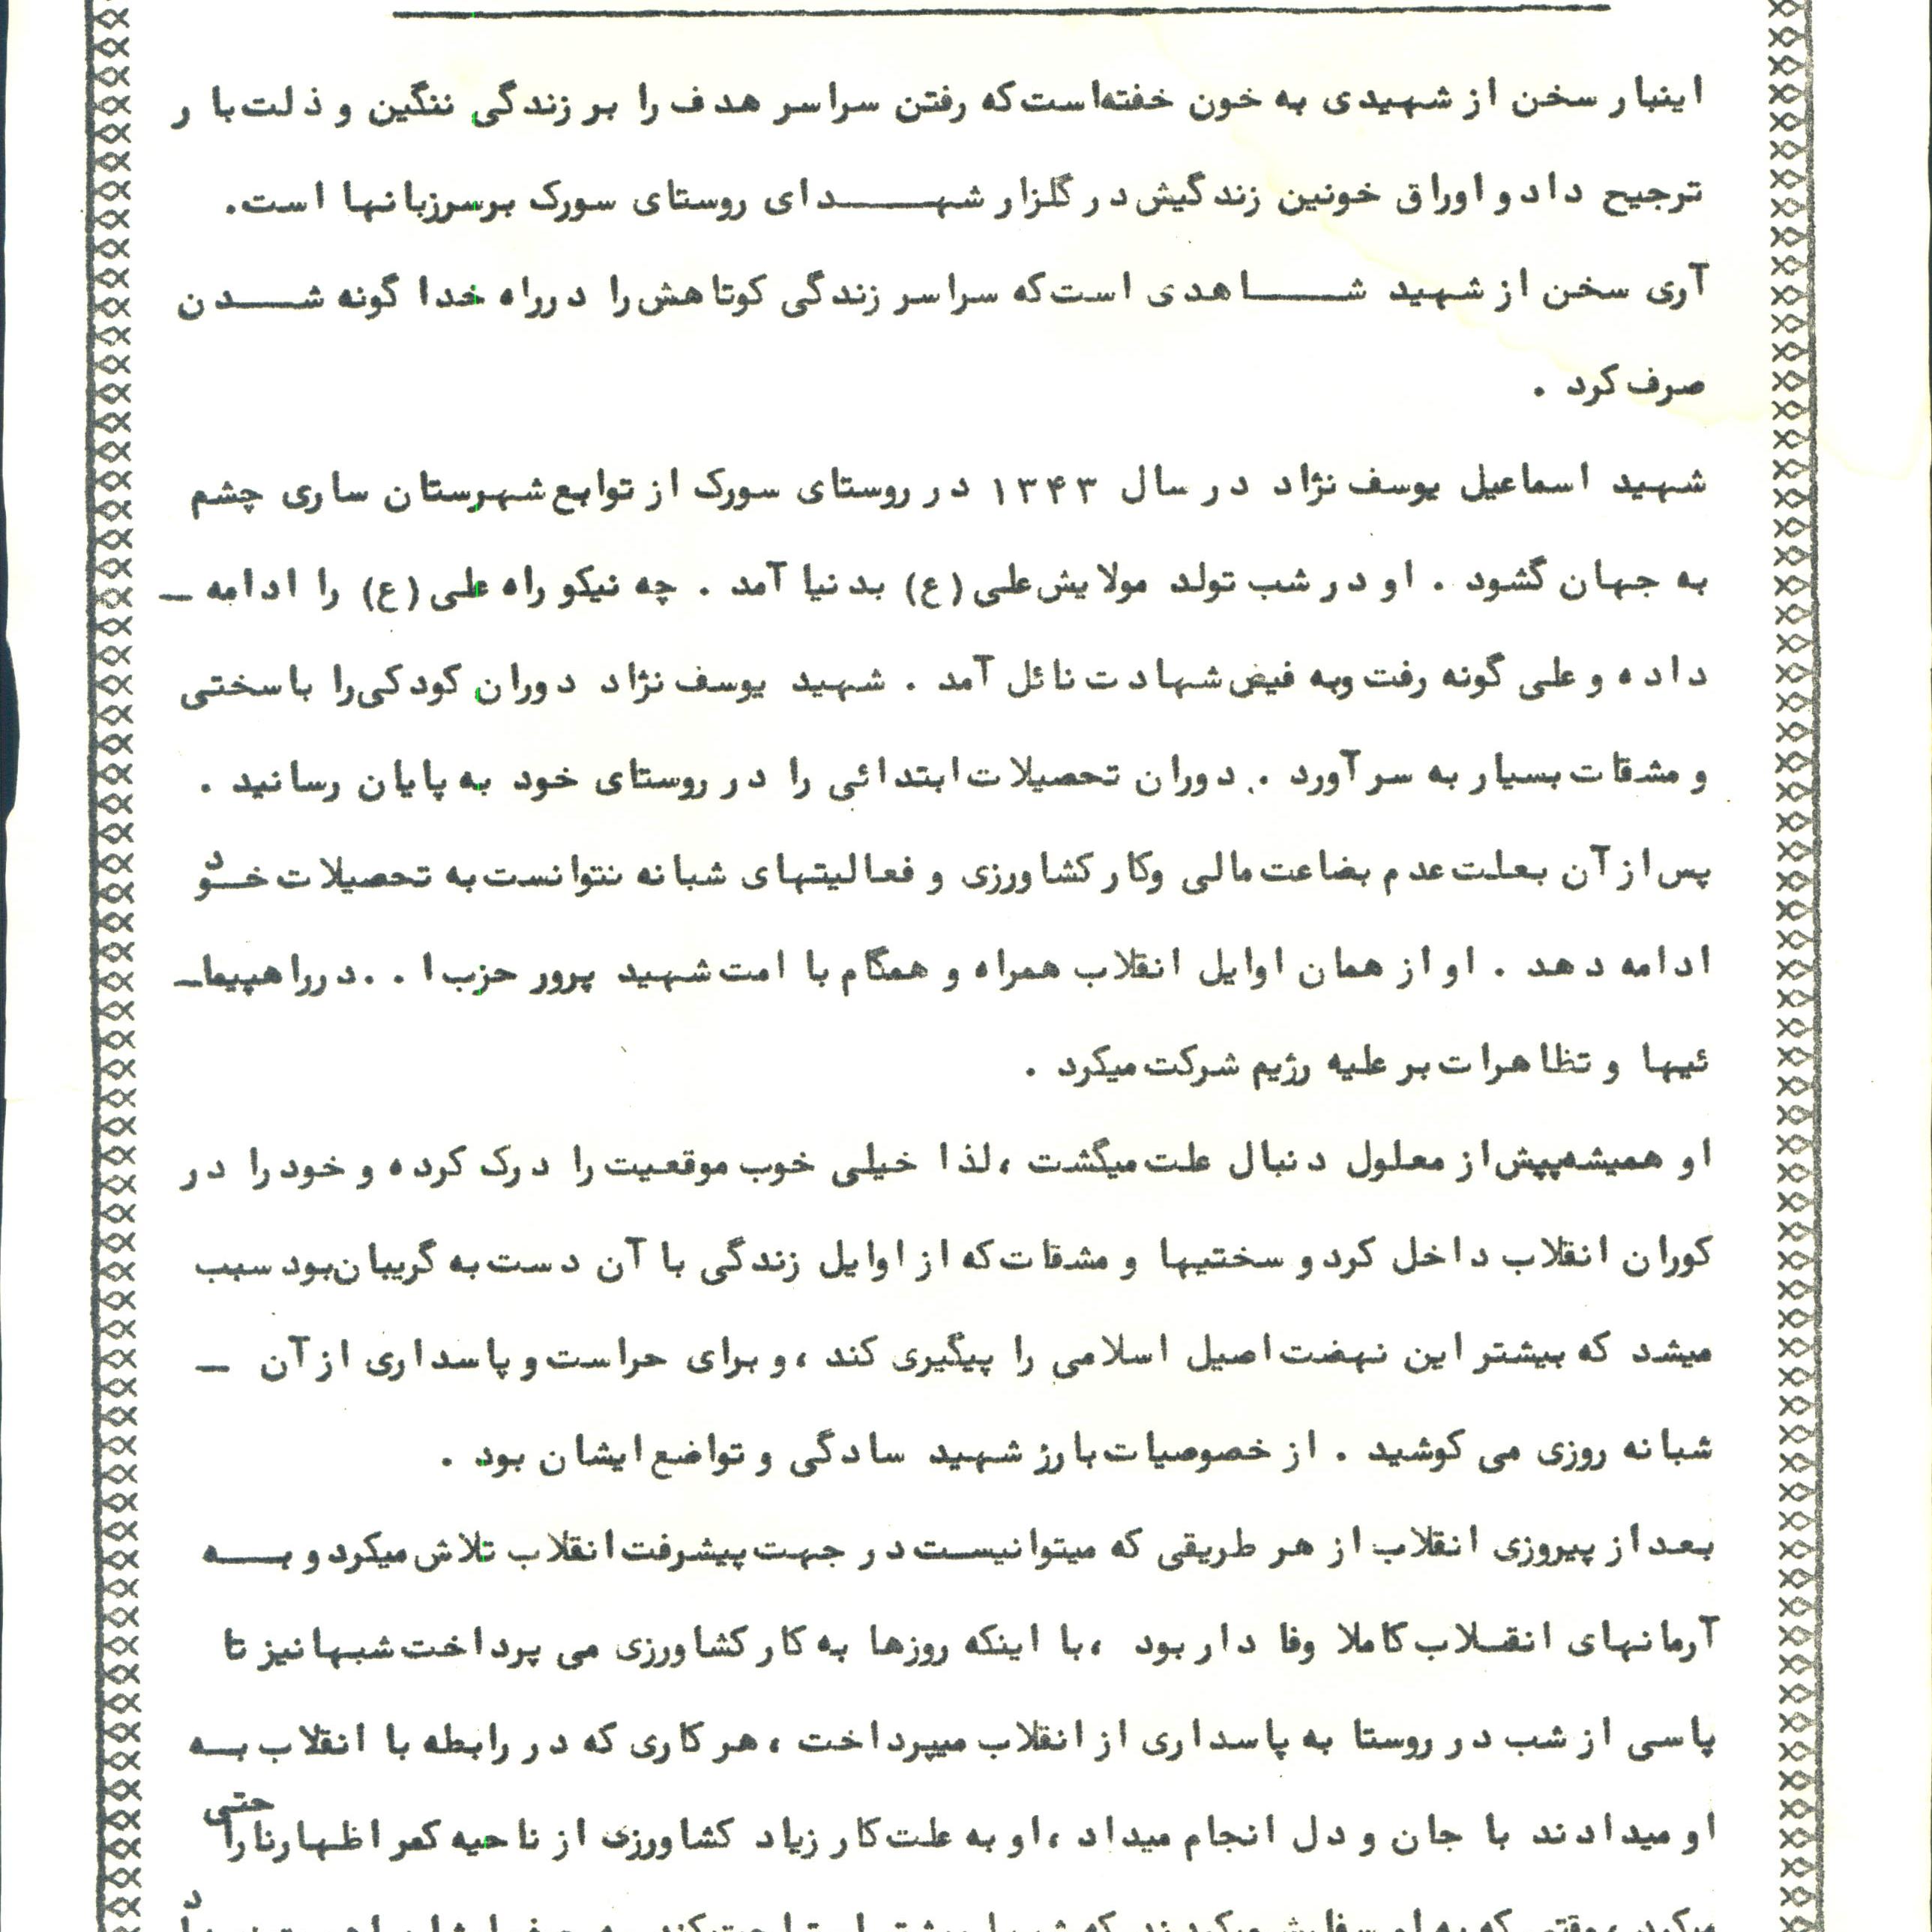 اینبار سخن از شهیدی به خون خفته‌است‌که رفتن سراسر هدف را بر زندگی ننگین و ذلت‌بار
ترجیح داد و اوراق خونین زندگیش در گلزار شهــــدای روستای سورک برسرزبانها است.
آری سخن از شهید شــــاهدی است‌که سراسر زندگی کوتاهش را درراه خدا گونه شــدن
صرف کرد .
شهید اسماعیل یوسف نژاد در سال ۱۳۴۳ در روستای سورک از توابع شهرستان ساری چشم
به جهان گشود . او در شب تولد مولایش علی (ع) بدنیا آمد . چه نیکو راه علی (ع) را ادامه ـ
داده و علی گونه رفت وبه فیض شهادت نائل آمد . شهید یوسف نژاد دوران کودکی‌را باسختی
و مشقات بسیار به سر آورد . دوران تحصیلات ابتدائی را در روستای خود به پایان رسانید .
پس از آن بعلت عدم بضاعت مالی وکار کشاورزی و فعالیتهای شبانه نتوانست به تحصیلات خــود
ادامه دهد . او از همان اوایل انقلاب همراه و همگام با امت شهید پرور حزب ا . . درراهپیماـ
ئیها و تظاهرات بر علیه رژیم شرکت میکرد .
او همیشه‌پیش از معلول دنبال علت میگشت ، لذا خیلی خوب موقعیت را درک کرده و خود را در
کوران انقلاب داخل کرد و سختیها و مشقات که از اوایل زندگی با آن دست به گریبان‌بود سبب
میشد که بیشتر این نهضت اصیل اسلامی را پیگیری کند ، و برای حراست و پاسداری از آن ـ
شبانه روزی می کوشید . از خصوصیات بارز شهید سادگی و تواضع ایشان بود .
بعد از پیروزی انقلاب از هر طریقی که میتوانیست در جهت پیشرفت انقلاب تلاش میکرد و بــه
آرمانهای انقــلاب کاملا وفا دار بود ، با اینکه روزها به کار کشاورزی می پرداخت شبها نیز تا
پاسی از شب در روستا به پاسداری از انقلاب میپرداخت ، هر کاری که در رابطه با انقلاب بــه
او میدادند با جان و دل انجام میداد ، او به علت کار زیاد کشاورزی از ناحیه کمر اظهارناراحتی